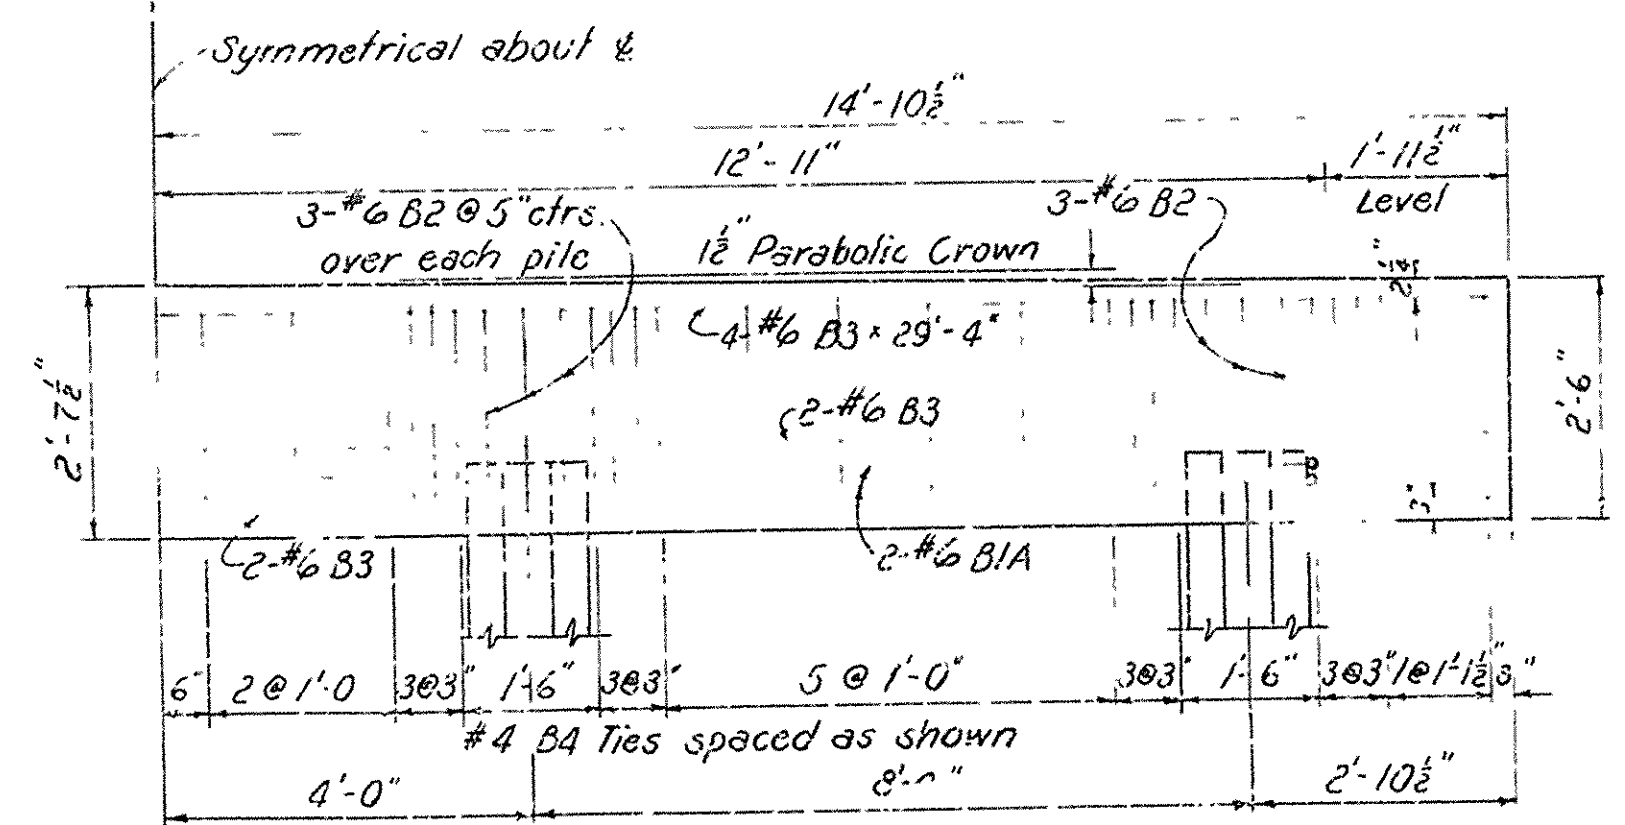 Symmetrical about ℄
14'-10½"
12'-11"
1'-11½"
Level
3-#6 B2 @ 5" ctrs.
over each pile
1½" Parabolic Crown
3-#6 B2
4-#6 B3 × 29'-4"
2'-7½"
2-#6 B3
2'-6"
3"
2-#6 B3
2-#6 B1A
6" 2 @ 1'-0 3@3" 1'-6" 3@3" 5 @ 1'-0" 3@3" 1'-6" 3@3" 1@1'-1½" 3"
#4 B4 Ties spaced as shown
4'-0"
2'-10½"